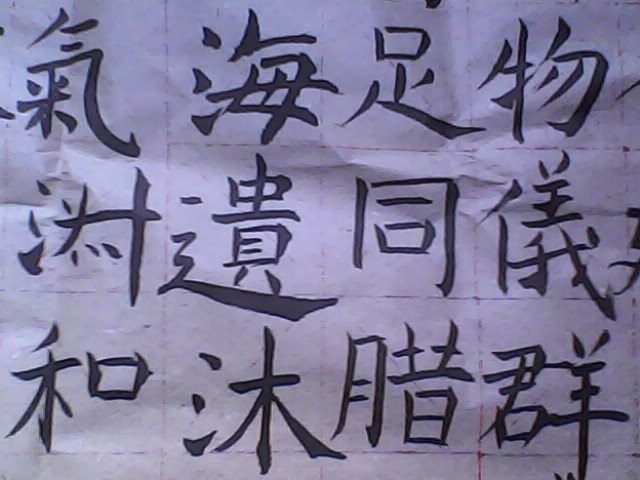 物儀群
足同腊
海遺沐
氣和